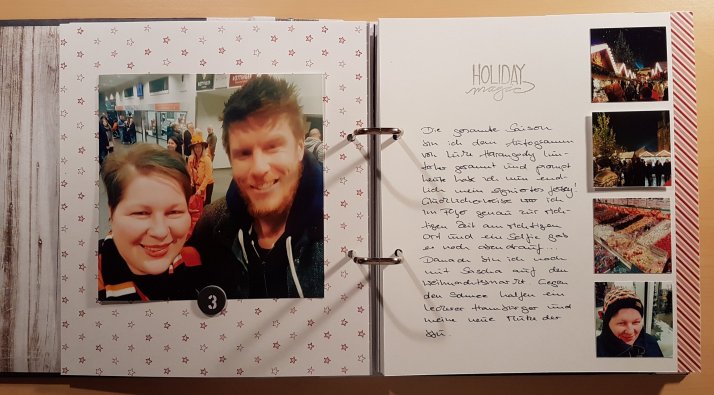 3
HOLIDAY
magic
Die gesamte Saison
bin ich dem Autogramm
von Luke Harangody hin-
terher gerannt und prompt
heute habe ich nun end-
lich mein signiertes Jersey!
Glücklicherweise war ich
im Foyer genau zur rich-
tigen Zeit am richtigen
Ort und ein Selfie gab
es noch obendrauf...
Danach bin ich noch
mit Sascha auf den
Weihnachtsmarkt. Gegen
den Schnee halfen ein
leckerer Hamburger und
meine neue Mütze der